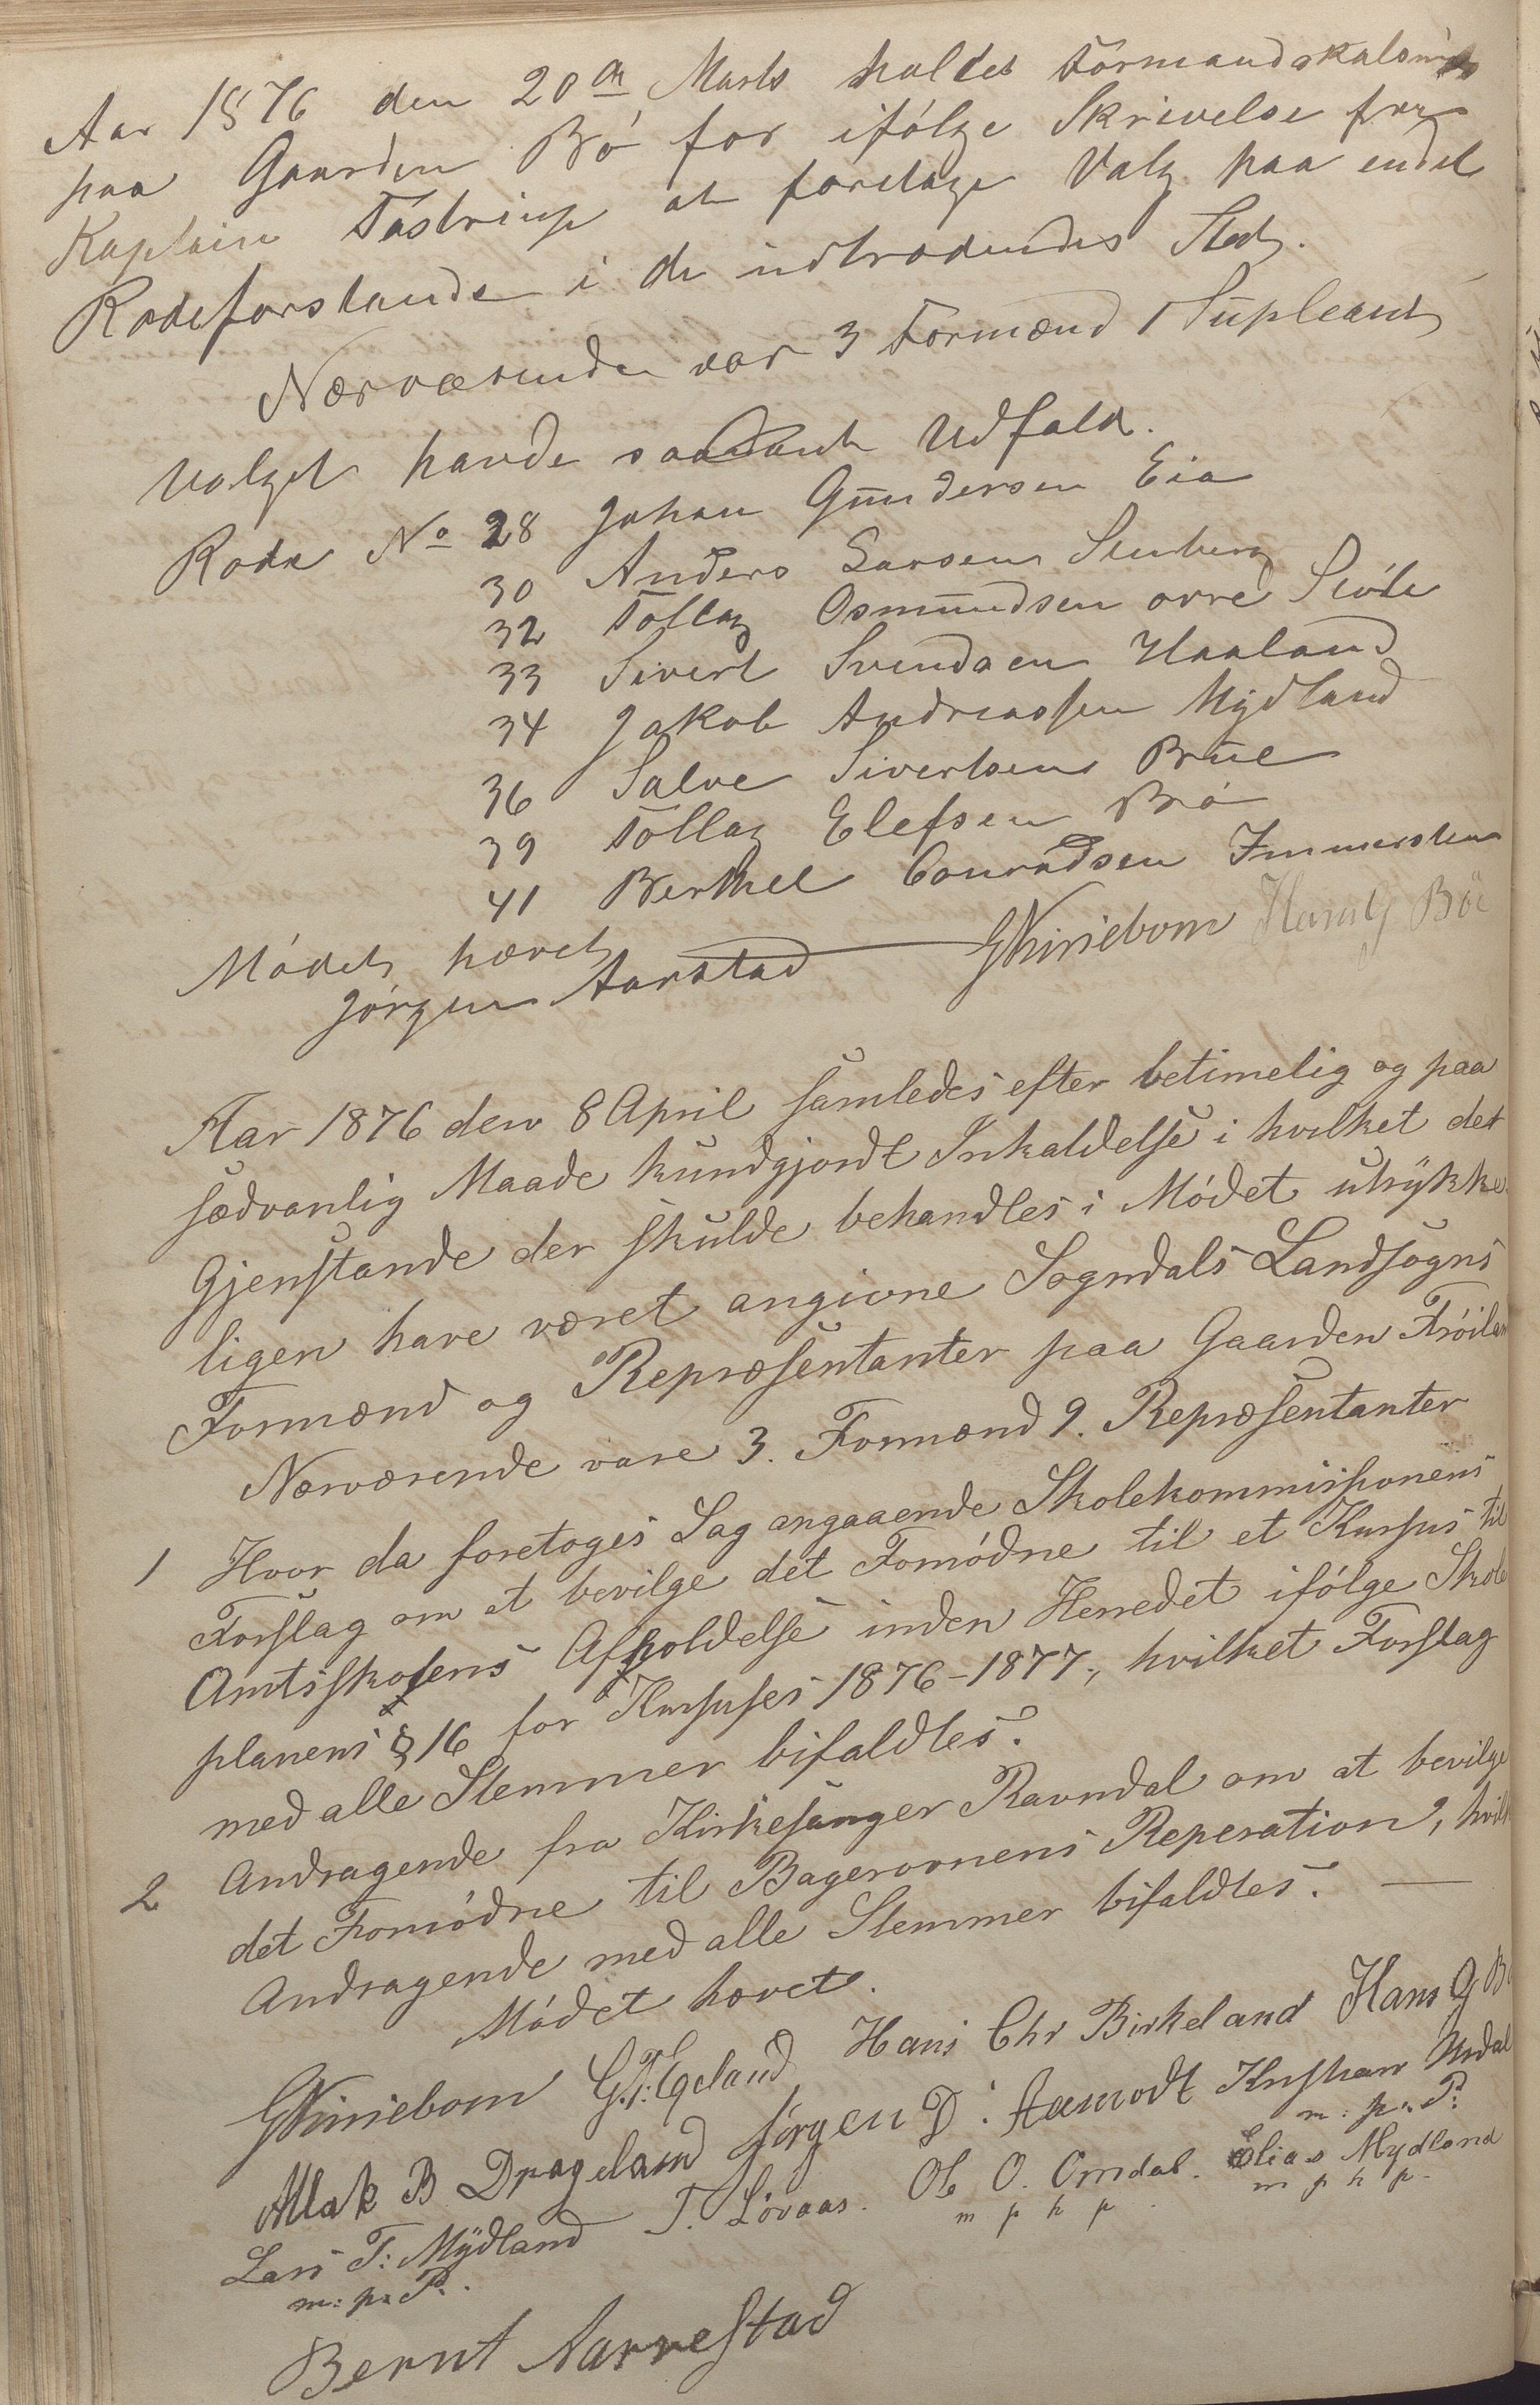 Aar 1876 den 20de Marts holdtes Formandskabsmöde
paa Gaarden Bö for ifölge Skrivelse fra
Kaptain Tostrup at foretage Valg paa endel
Rodeforstandere i de udtrædendes Sted.
Nærværende var 3 Formænd 1 Supleant
Valget havde saadant Udfald.
Rode No 28 Johan Gundersen Eia
30 Anders Larsen Stenberg
32 Tollag Osmundsen övre Sivle
33 Sivert Svendsen Haaland
34 Jakob Andreassen Mydland
36 Salve Sivertsen Brue
39 Tollag Elefsen Bö
41 Berthel Conradsen Immersten
Mödet hævet
Jörgen Aarstad GNiniebom Hans G Böe
Aar 1876 den 8 April samledes efter betimelig og paa
sædvanlig Maade kundgjordt Inkaldelse i hvilket det
Gjenstande der skulde behandles i Mödet utrykke
ligen have været angivne Sogndals Landsogns
Formænd og Repræsentanter paa Gaarden Fröilan
Nærværende vare 3. Formænd 9. Repræsentanter
1 Hvor da foretoges Sag angaaende Skolekommissionens
Forslag om at bevilge det Fornödne til et Kursus til
Amtsskolens Afholdelse inden Herredet ifölge Skole
planens § 16 for Kursuses 1876-1877, hvilket Forslag
med alle Stemmer bifaldtes.
2 Andragende fra Kirkesanger Ravndal om at bevilge
det Fornödne til Bagerovnens Reperation, hvilk
Andragende med alle Stemmer bifaldtes. —
Mödet hævet.
GNiniebom G. T. Egeland Hans Chr Birkeland Hans G Bö
Atlak B Drageland Jörgen D. Aamodt Kristian Urdal
m: p: P:
Lars T: Mydland T. Lövaas. Ole O. Omdal. Elias Mydland
m: p: P. m p h p m p h p
Bernt Aarrestad